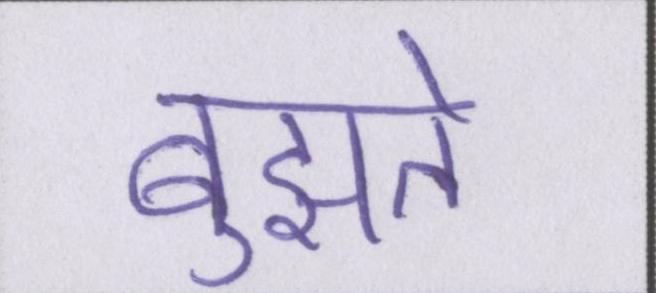 बुझते